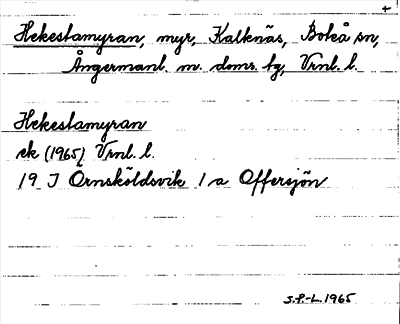 +
Hekestamyran, myr, Kalknäs, Boteå sn,
Ångermanl. m. doms. fg, Vrnl. l.
Hekestamyran
ek (1965) Vrnl. l.
19 J Örnsköldsvik 1 a Offersjön
S.P.-L. 1965